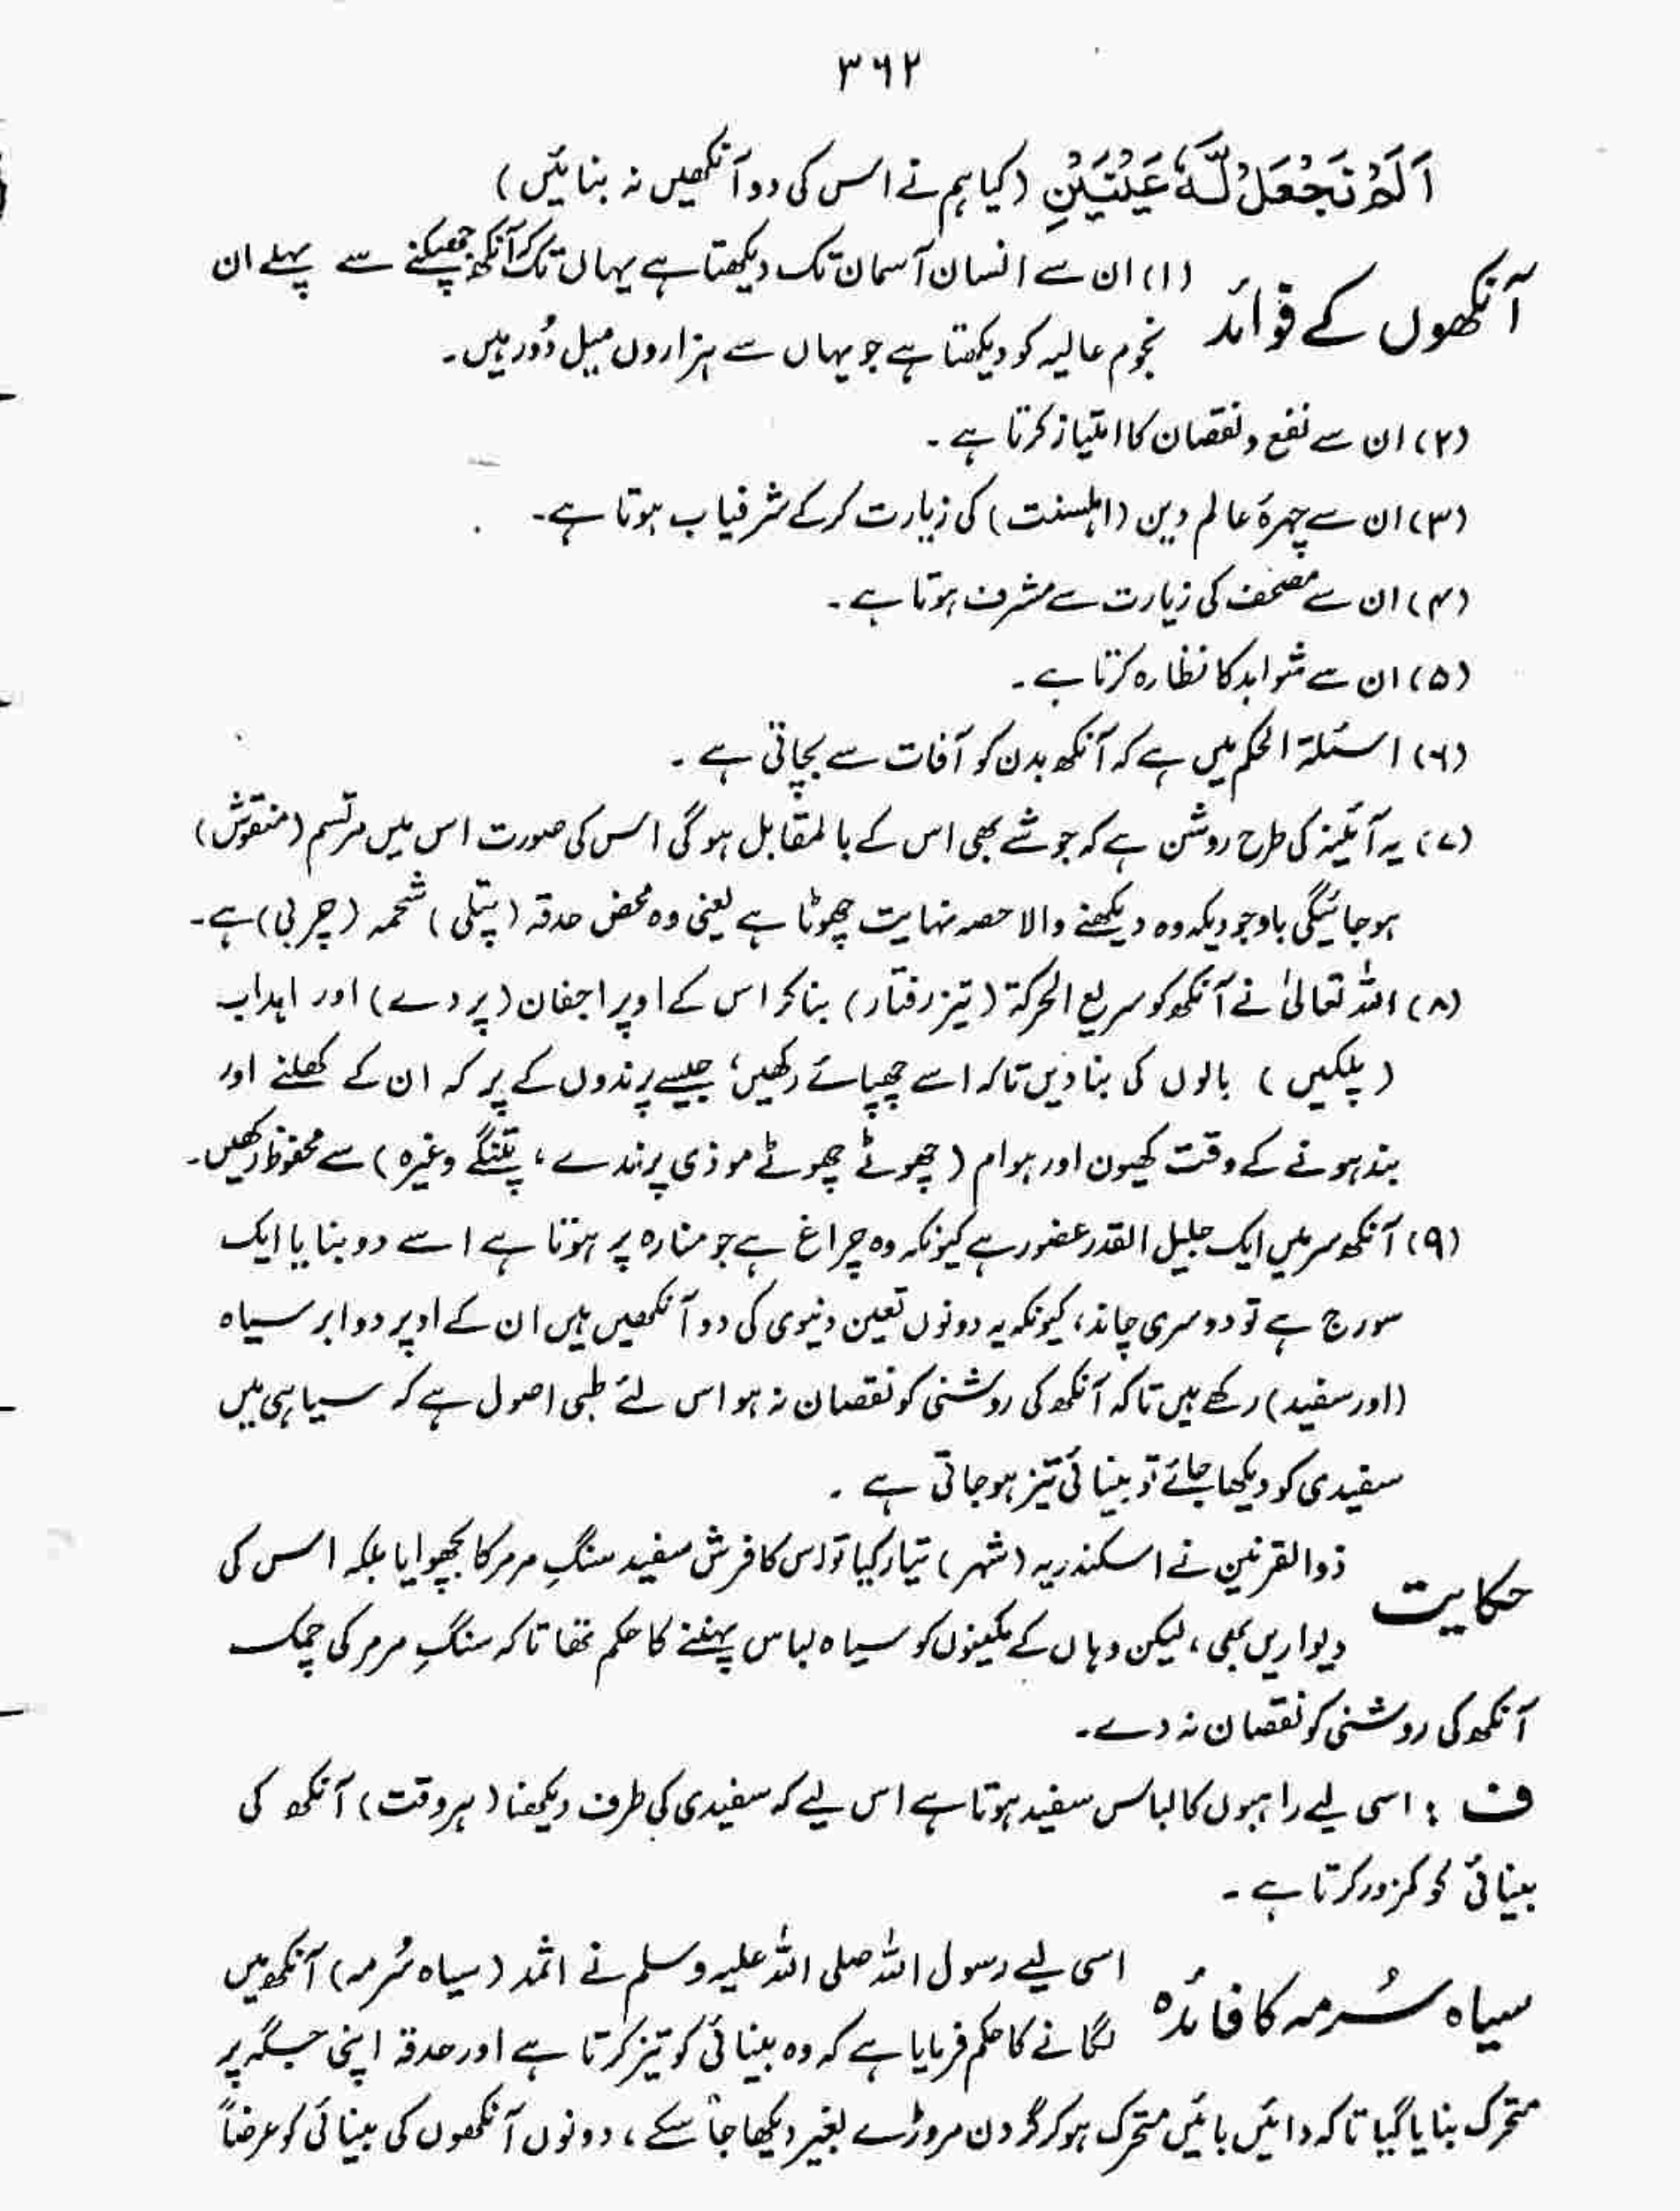 ۳۶۲
اَلَمْ نَجْعَلْ لَّہٗ عَیْنَیْنِ (کیا ہم نے اس کی دو آنکھیں نہ بنائیں)
آنکھوں کے فوائد
(۱) ان سے انسان آسمان تک دیکھتا ہے یہاں تک کہ آنکھ جھپکنے سے پہلے ان
نجوم عالیہ کو دیکھتا ہے جو یہاں سے ہزاروں میل دُور ہیں۔
(۲) ان سے نفع و نقصان کا امتیاز کرتا ہے۔
(۳) ان سے چہرۂ عالم دین (اہلسنت) کی زیارت کرکے شرفیاب ہوتا ہے۔
(۴) ان سے مصحف کی زیارت سے مشرف ہوتا ہے۔
(۵) ان سے شواہد کا نظارہ کرتا ہے۔
(۶) اسئلۃ الحکم میں ہے کہ آنکھ بدن کو آفات سے بچاتی ہے۔
(۷) یہ آئینہ کی طرح روشن ہے کہ جو شے بھی اس کے بالمقابل ہوگی اس کی صورت اس میں مرتسم (منقوش)
ہوجائیگی باوجودیکہ وہ دیکھنے والا حصہ نہایت چھوٹا ہے یعنی وہ محض حدقہ (پتلی) شحمہ (چربی) ہے۔
(۸) اللہ تعالیٰ نے آنکھ کو سریع الحرکۃ (تیز رفتار) بنا کر اس کے اوپر اجفان (پردے) اور اہداب
(پلکیں) بالوں کی بنا دیں تاکہ اسے چھپائے رکھیں، جیسے پرندوں کے پر کہ ان کے کھلنے اور
بند ہونے کے وقت کھیون اور ہوام (چھوٹے چھوٹے موذی پرندے، پتنگے وغیرہ) سے محفوظ رکھیں۔
(۹) آنکھ سر میں ایک جلیل القدر عضور ہے کیونکہ وہ چراغ ہے جو منارہ پر ہوتا ہے اسے دو بنایا ایک
سورج ہے تو دوسری چاند، کیونکہ یہ دونوں تعین دنیوی کی دو آنکھیں ہیں ان کے اوپر دو ابر سیاہ
(اور سفید) رکھے ہیں تاکہ آنکھ کی روشنی کو نقصان نہ ہو اس لئے طبی اصول ہے کہ سیاہی میں
سفیدی کو دیکھا جائے تو بینائی تیز ہوجاتی ہے۔
حکایت
ذوالقرنین نے اسکندریہ (شہر) تیار کیا تو اس کا فرش سفید سنگِ مرمر کا بچھوایا بلکہ اس کی
دیواریں بھی، لیکن وہاں کے مکینوں کو سیاہ لباس پہننے کا حکم تھا تاکہ سنگِ مرمر کی چمک
آنکھ کی روشنی کو نقصان نہ دے۔
ف : اسی لیے راہبوں کا لباس سفید ہوتا ہے اس لیے کہ سفیدی کی طرف دیکھنا (ہر وقت) آنکھ کی
بینائی کو کمزور کرتا ہے۔
سیاہ سُرمہ کا فائدہ
اسی لیے رسول اللہ صلی اللہ علیہ وسلم نے اثمد (سیاہ سُرمہ) آنکھ میں
لگانے کا حکم فرمایا ہے کہ وہ بینائی کو تیز کرتا ہے اور حدقہ اپنی جگہ پر
متحرک بنایا گیا تاکہ دائیں بائیں متحرک ہوکر گردن مروڑے بغیر دیکھا جا سکے، دونوں آنکھوں کی بینائی کو عرضاً